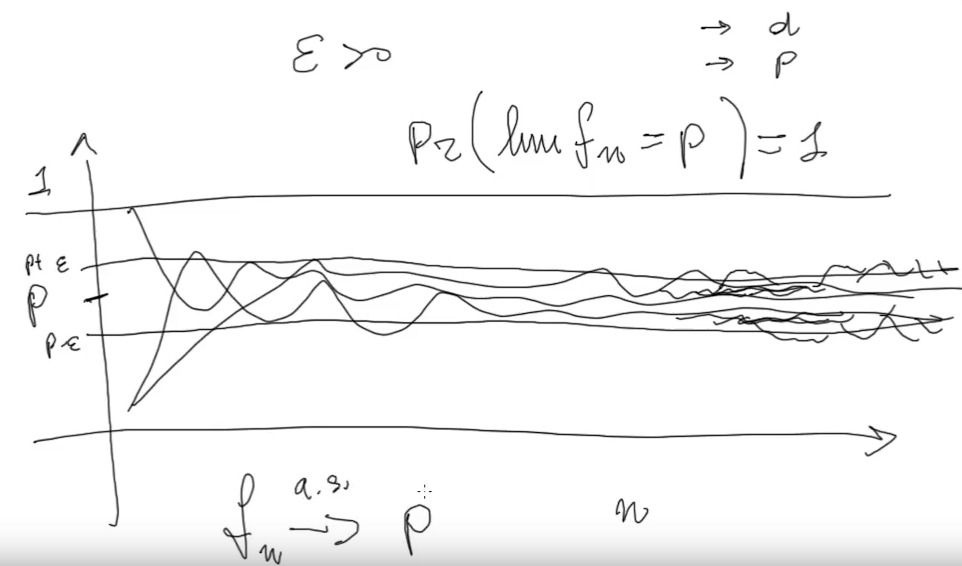 ε > 0
→ d
→ p
Pr(lim fn = p) = 1
1
p+ε
p
p-ε
fn a.s. → p
n